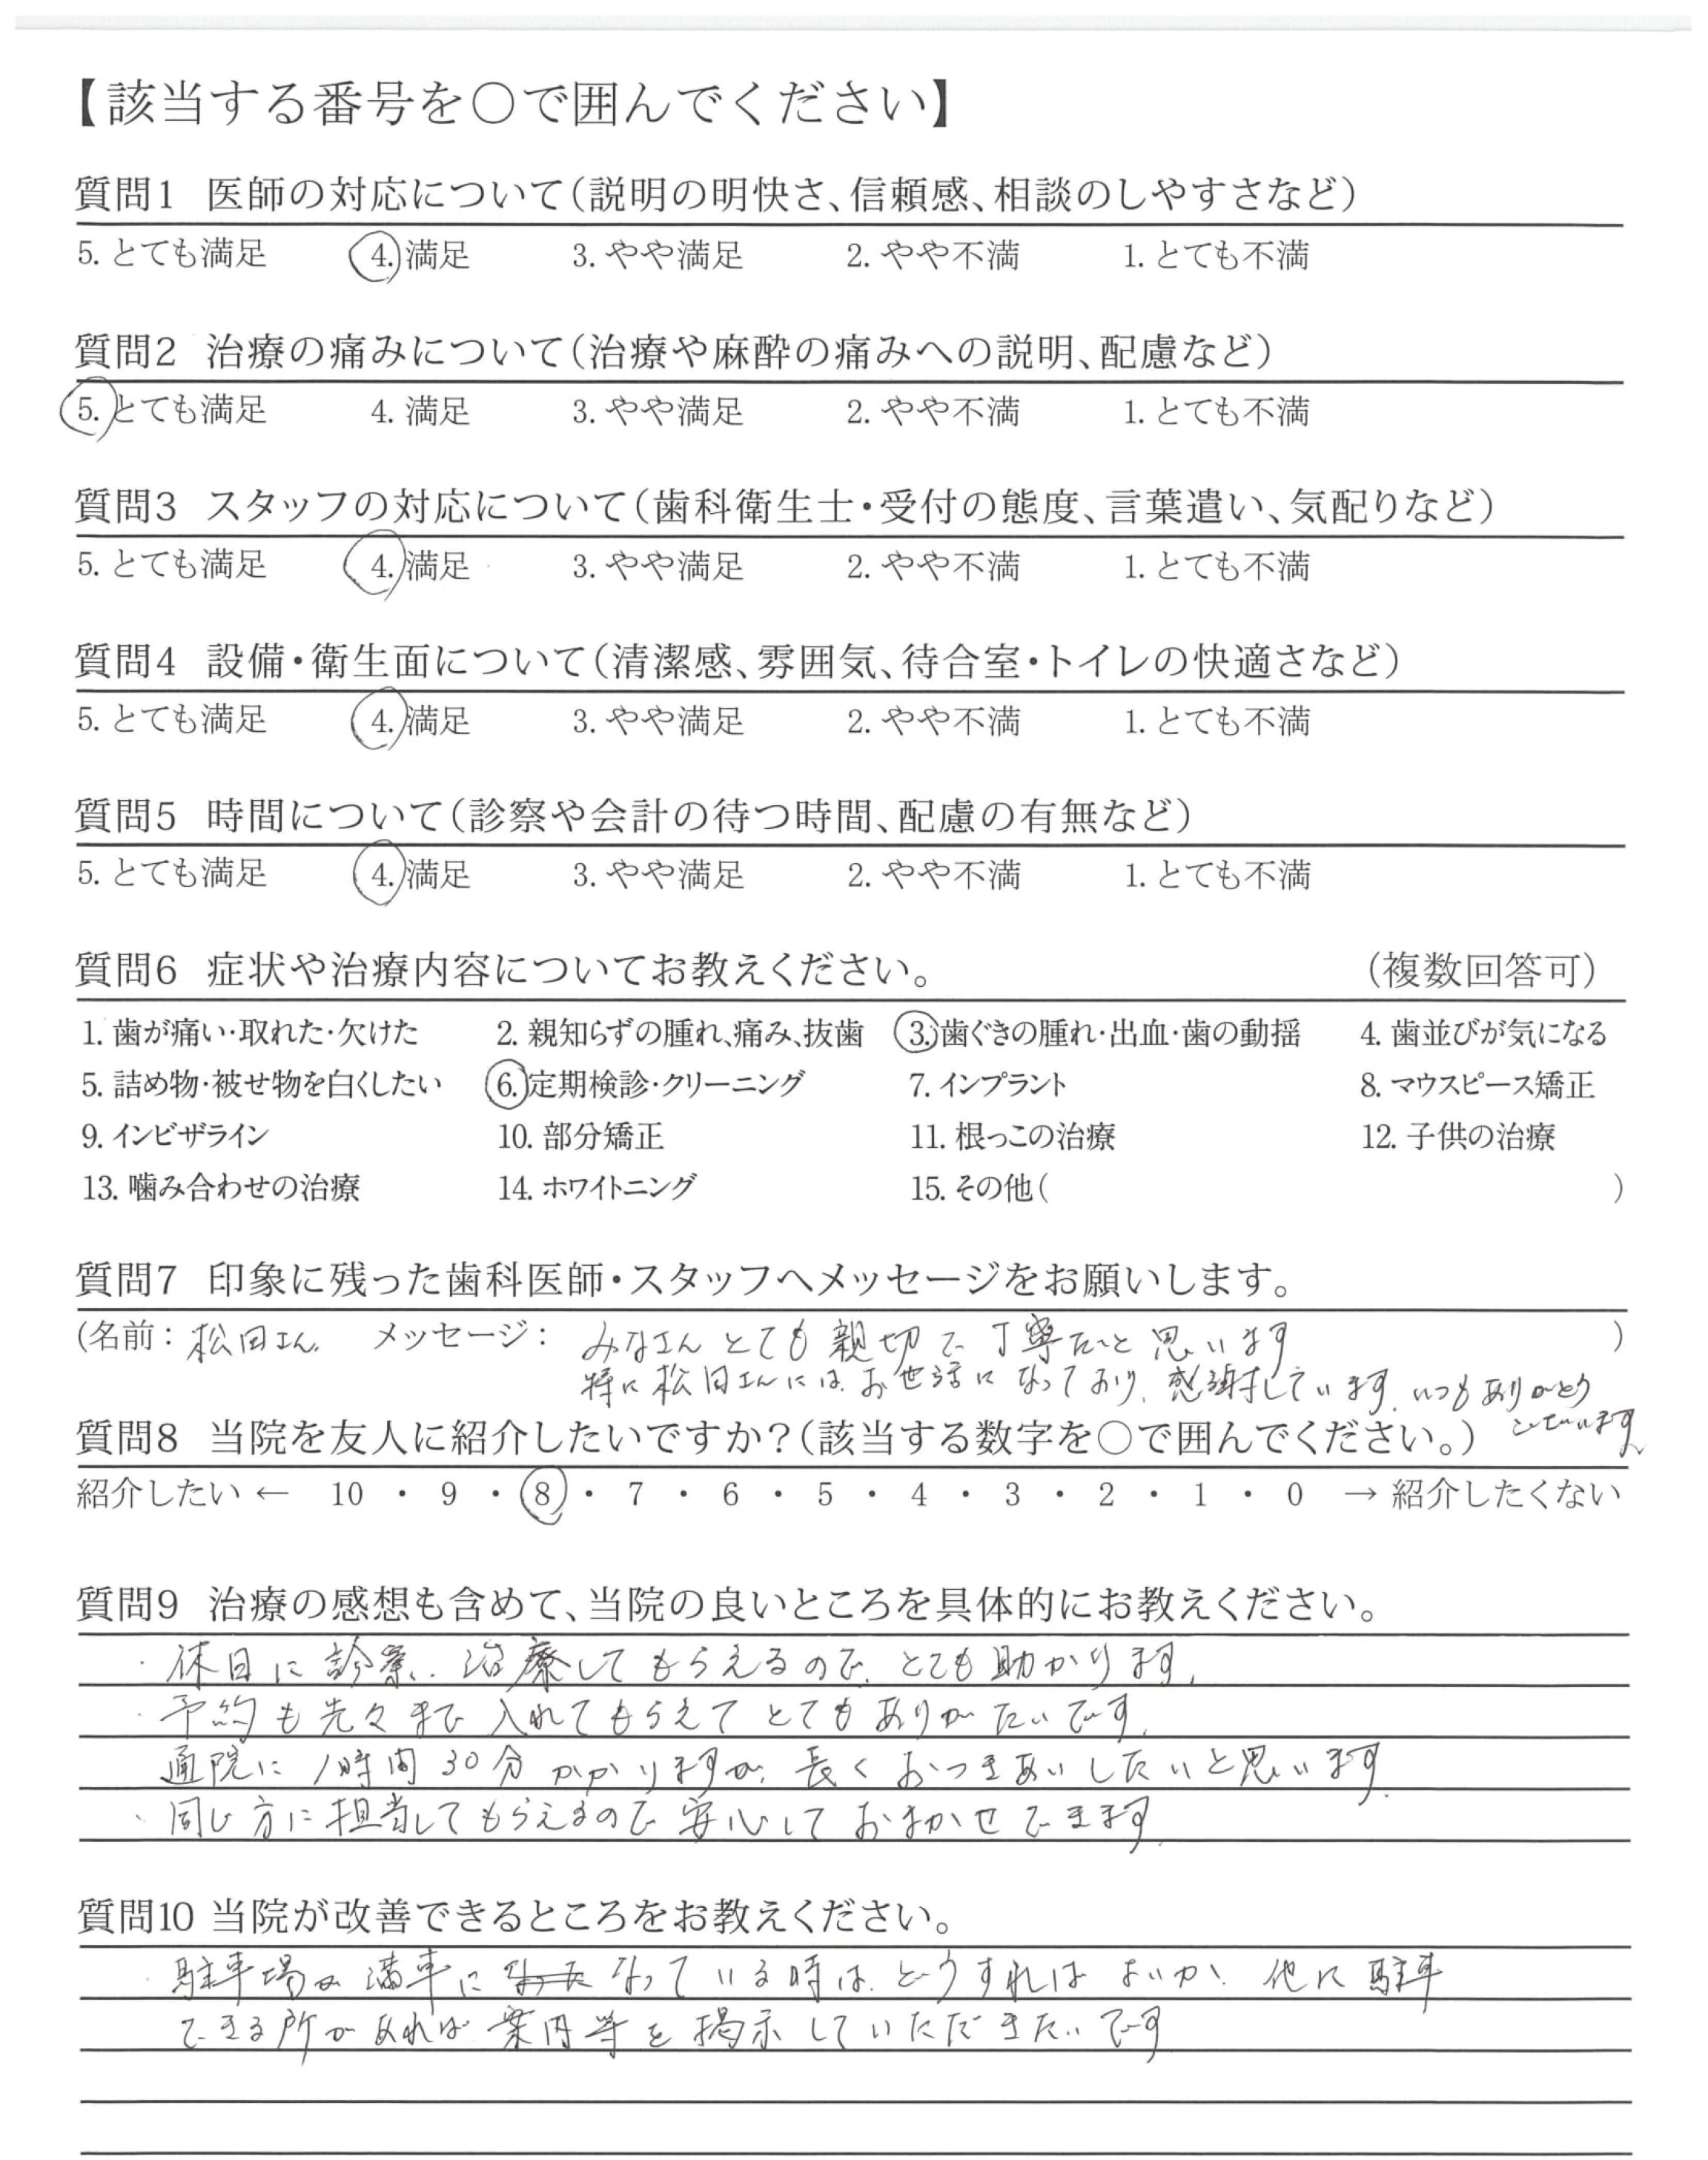 【該当する番号を○で囲んでください】
質問1 医師の対応について(説明の明快さ、信頼感、相談のしやすさなど)
5. とても満足 4. 満足 3. やや満足 2. やや不満 1. とても不満
質問2 治療の痛みについて(治療や麻酔の痛みへの説明、配慮など)
5. とても満足 4. 満足 3. やや満足 2. やや不満 1. とても不満
質問3 スタッフの対応について(歯科衛生士・受付の態度、言葉遣い、気配りなど)
5. とても満足 4. 満足 3. やや満足 2. やや不満 1. とても不満
質問4 設備・衛生面について(清潔感、雰囲気、待合室・トイレの快適さなど)
5. とても満足 4. 満足 3. やや満足 2. やや不満 1. とても不満
質問5 時間について(診察や会計の待つ時間、配慮の有無など)
5. とても満足 4. 満足 3. やや満足 2. やや不満 1. とても不満
質問6 症状や治療内容についてお教えください。 (複数回答可)
1. 歯が痛い・取れた・欠けた 2. 親知らずの腫れ、痛み、抜歯 3. 歯ぐきの腫れ・出血・歯の動揺 4. 歯並びが気になる
5. 詰め物・被せ物を白くしたい 6. 定期検診・クリーニング 7. インプラント 8. マウスピース矯正
9. インビザライン 10. 部分矯正 11. 根っこの治療 12. 子供の治療
13. 噛み合わせの治療 14. ホワイトニング 15. その他( )
質問7 印象に残った歯科医師・スタッフへメッセージをお願いします。
(名前: 松田さん メッセージ: みなさんとても親切で丁寧だと思います )
特に松田さんには、お世話になっており、感謝しています。いつもありがとう
ございます。
質問8 当院を友人に紹介したいですか?(該当する数字を○で囲んでください。)
紹介したい ← 10 ・ 9 ・ 8 ・ 7 ・ 6 ・ 5 ・ 4 ・ 3 ・ 2 ・ 1 ・ 0 → 紹介したくない
質問9 治療の感想も含めて、当院の良いところを具体的にお教えください。
・休日に診察、治療してもらえるので、とても助かります。
・予約も先々まで入れてもらえてとてもありがたいです。
通院に1時間30分かかりますが、長くおつきあいしたいと思います。
・同じ方に担当してもらえるので安心しておまかせできます。
質問10 当院が改善できるところをお教えください。
・駐車場が満車になった なっている時は、どうすればよいか、他に駐車
できる所があれば案内等を掲示していただきたいです